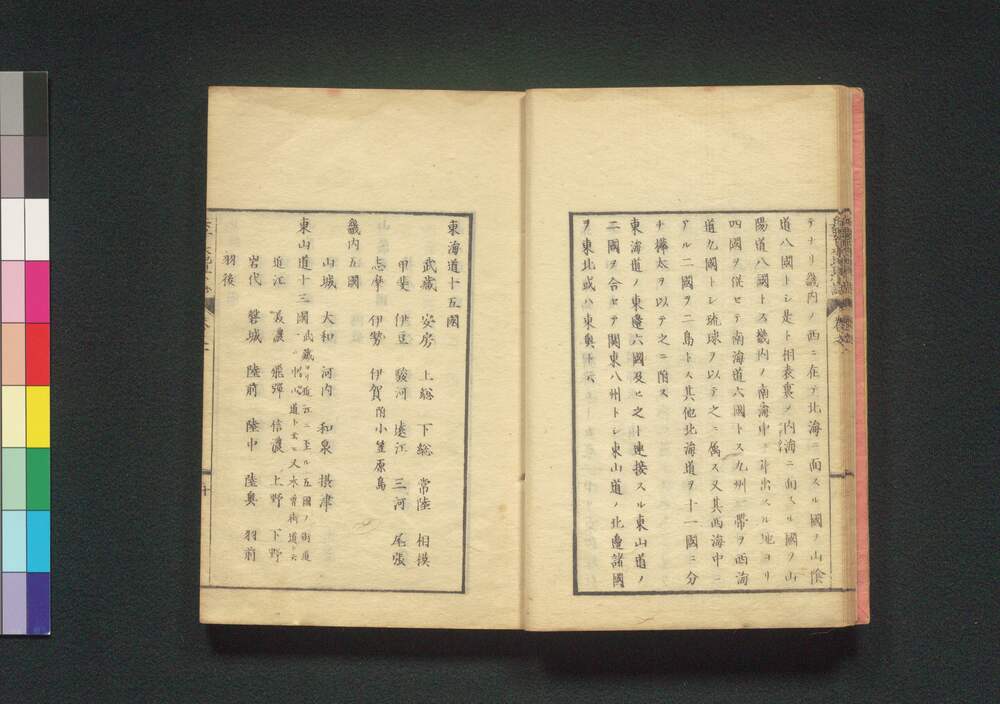 テナリ畿内ノ西ニ在テ北海ニ面スル國ヲ山陰
道八國トシ是ト相表裏シ内海ニ面スル國ヲ山
陽道八國トス畿内ノ南海中ニ斗出スル地ヨリ
四國ヲ併セテ南海道六國トス九州一帶ヲ西海
道九國トシ琉球ヲ以テ之ニ属ス又其西海中ニ
アル二國ヲ二島トス其他北海道ヲ十一國ニ分
チ樺太ヲ以テ之ニ附ス
東海道ノ東邊六國及ヒ之ト連接スル東山道ノ
二國ヲ合セテ関東八州トシ東山道ノ北邊諸國
ヲ東北或ハ東奥ト云
東海道十五國
武藏 安房 上総 下総 常陸 相摸
甲斐 伊豆 駿河 遠江 三河 尾張
志摩 伊勢 伊賀 附小笠原島
畿内五國
山城 大和 河内 和泉 摂津
東山道十三國 武藏ヨリ近江ニ至ル五國ノ街道
道ト云ヒ又木曽街道ト云
近江 美濃 飛彈 信濃 上野 下野
岩代 磐城 陸前 陸中 陸奥 羽前
羽後
十